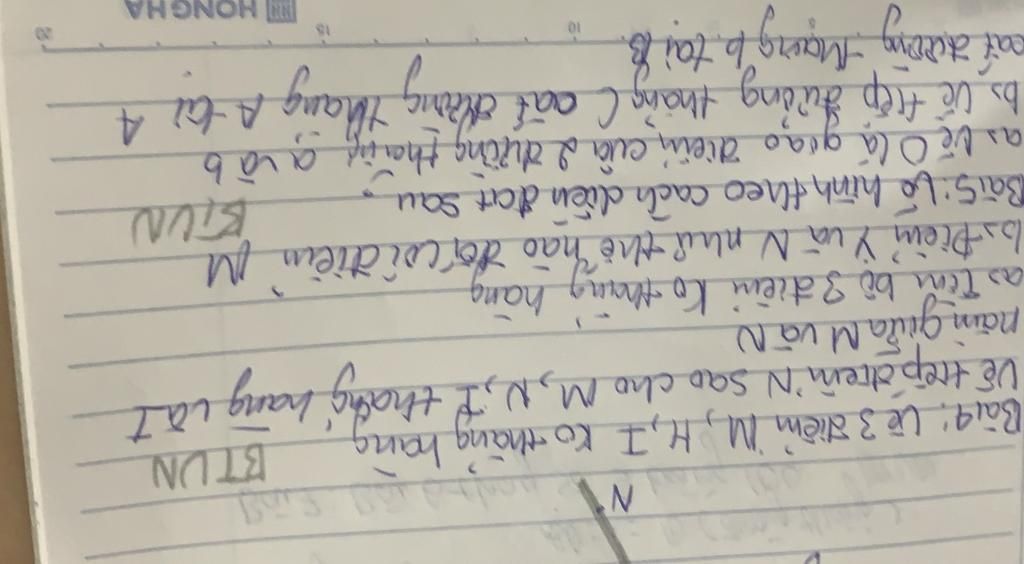 N
BTVN
Bài 4: Vẽ 3 điểm M, H, I ko thẳng hàng
Vẽ tiếp điểm N sao cho M, N, I thẳng hàng và I
nằm giữa M và N
a, Tìm bộ 3 điểm ko thẳng hàng
b, Điểm Y và N như thế nào đối với điểm M
BTVN
Bài 5: Vẽ hình theo cách diễn đạt sau
a, Vẽ O là giao điểm của 2 đường thẳng a và b
b, Vẽ tiếp đường thẳng C cắt đường thẳng A tại A
cắt đường thẳng b tại B
5 10 15 20
HONG HA